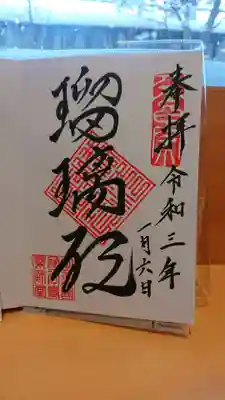 奉拝
令和三年
一月六日
瑠璃殿